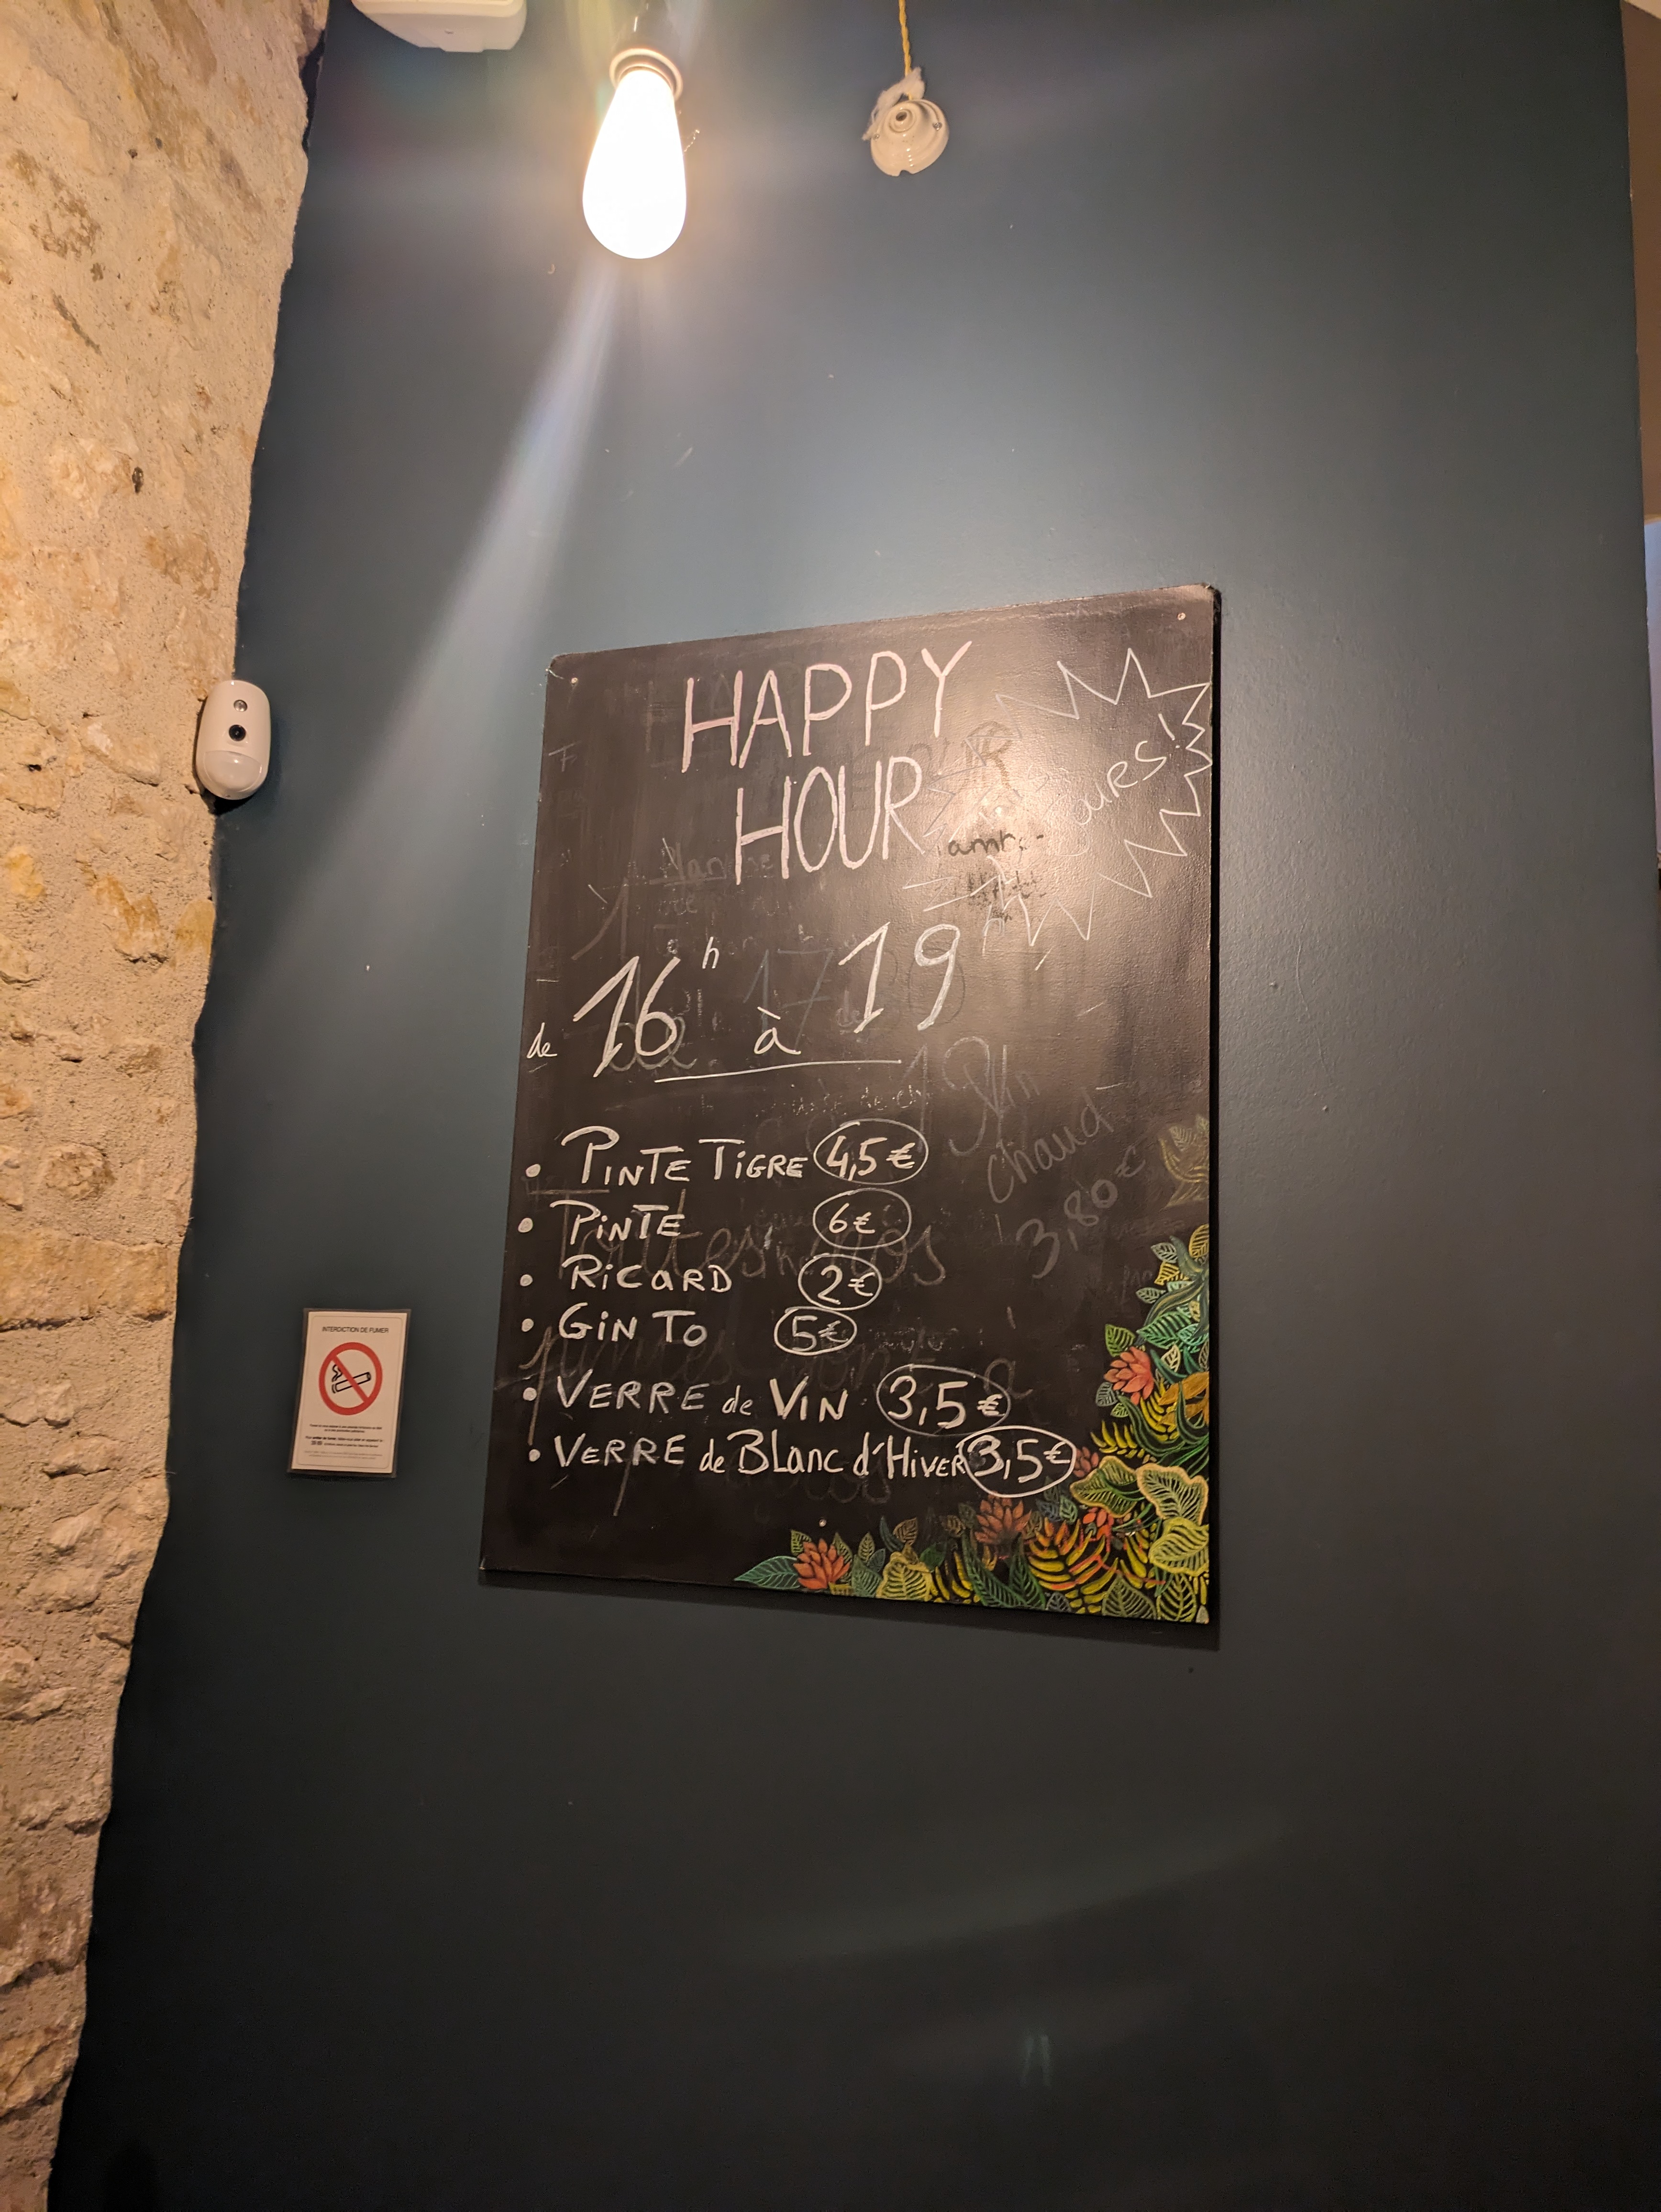 HAPPY
HOUR
JOURS!
de 16h à 19h
• PINTE TIGRE 4,5€
• PINTE 6€
• RICARD 2€
• GIN TO 5€
• VERRE de VIN 3,5€
• VERRE de BLanc d'HIVER 3,5€
chaud
3,80€
INTERDICTION DE FUMER